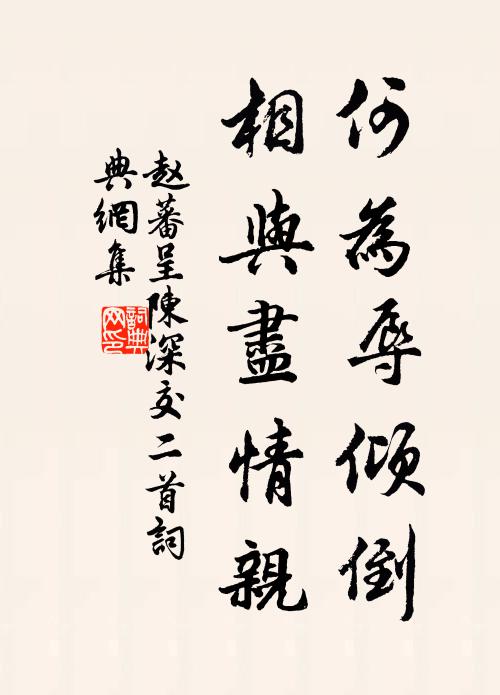 何為辱傾倒
相與盡情親
赵蕃呈陳深交二首詞
典網集
詞典网印